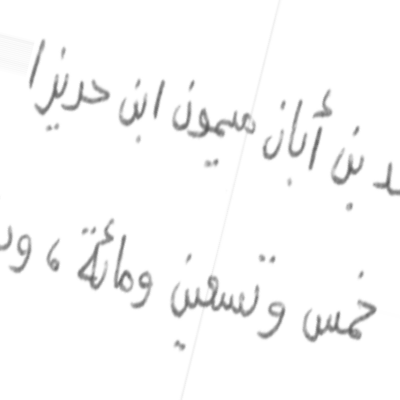 بن أبان ميمون ابن حديزا
خمس وتسعين ومائة ،